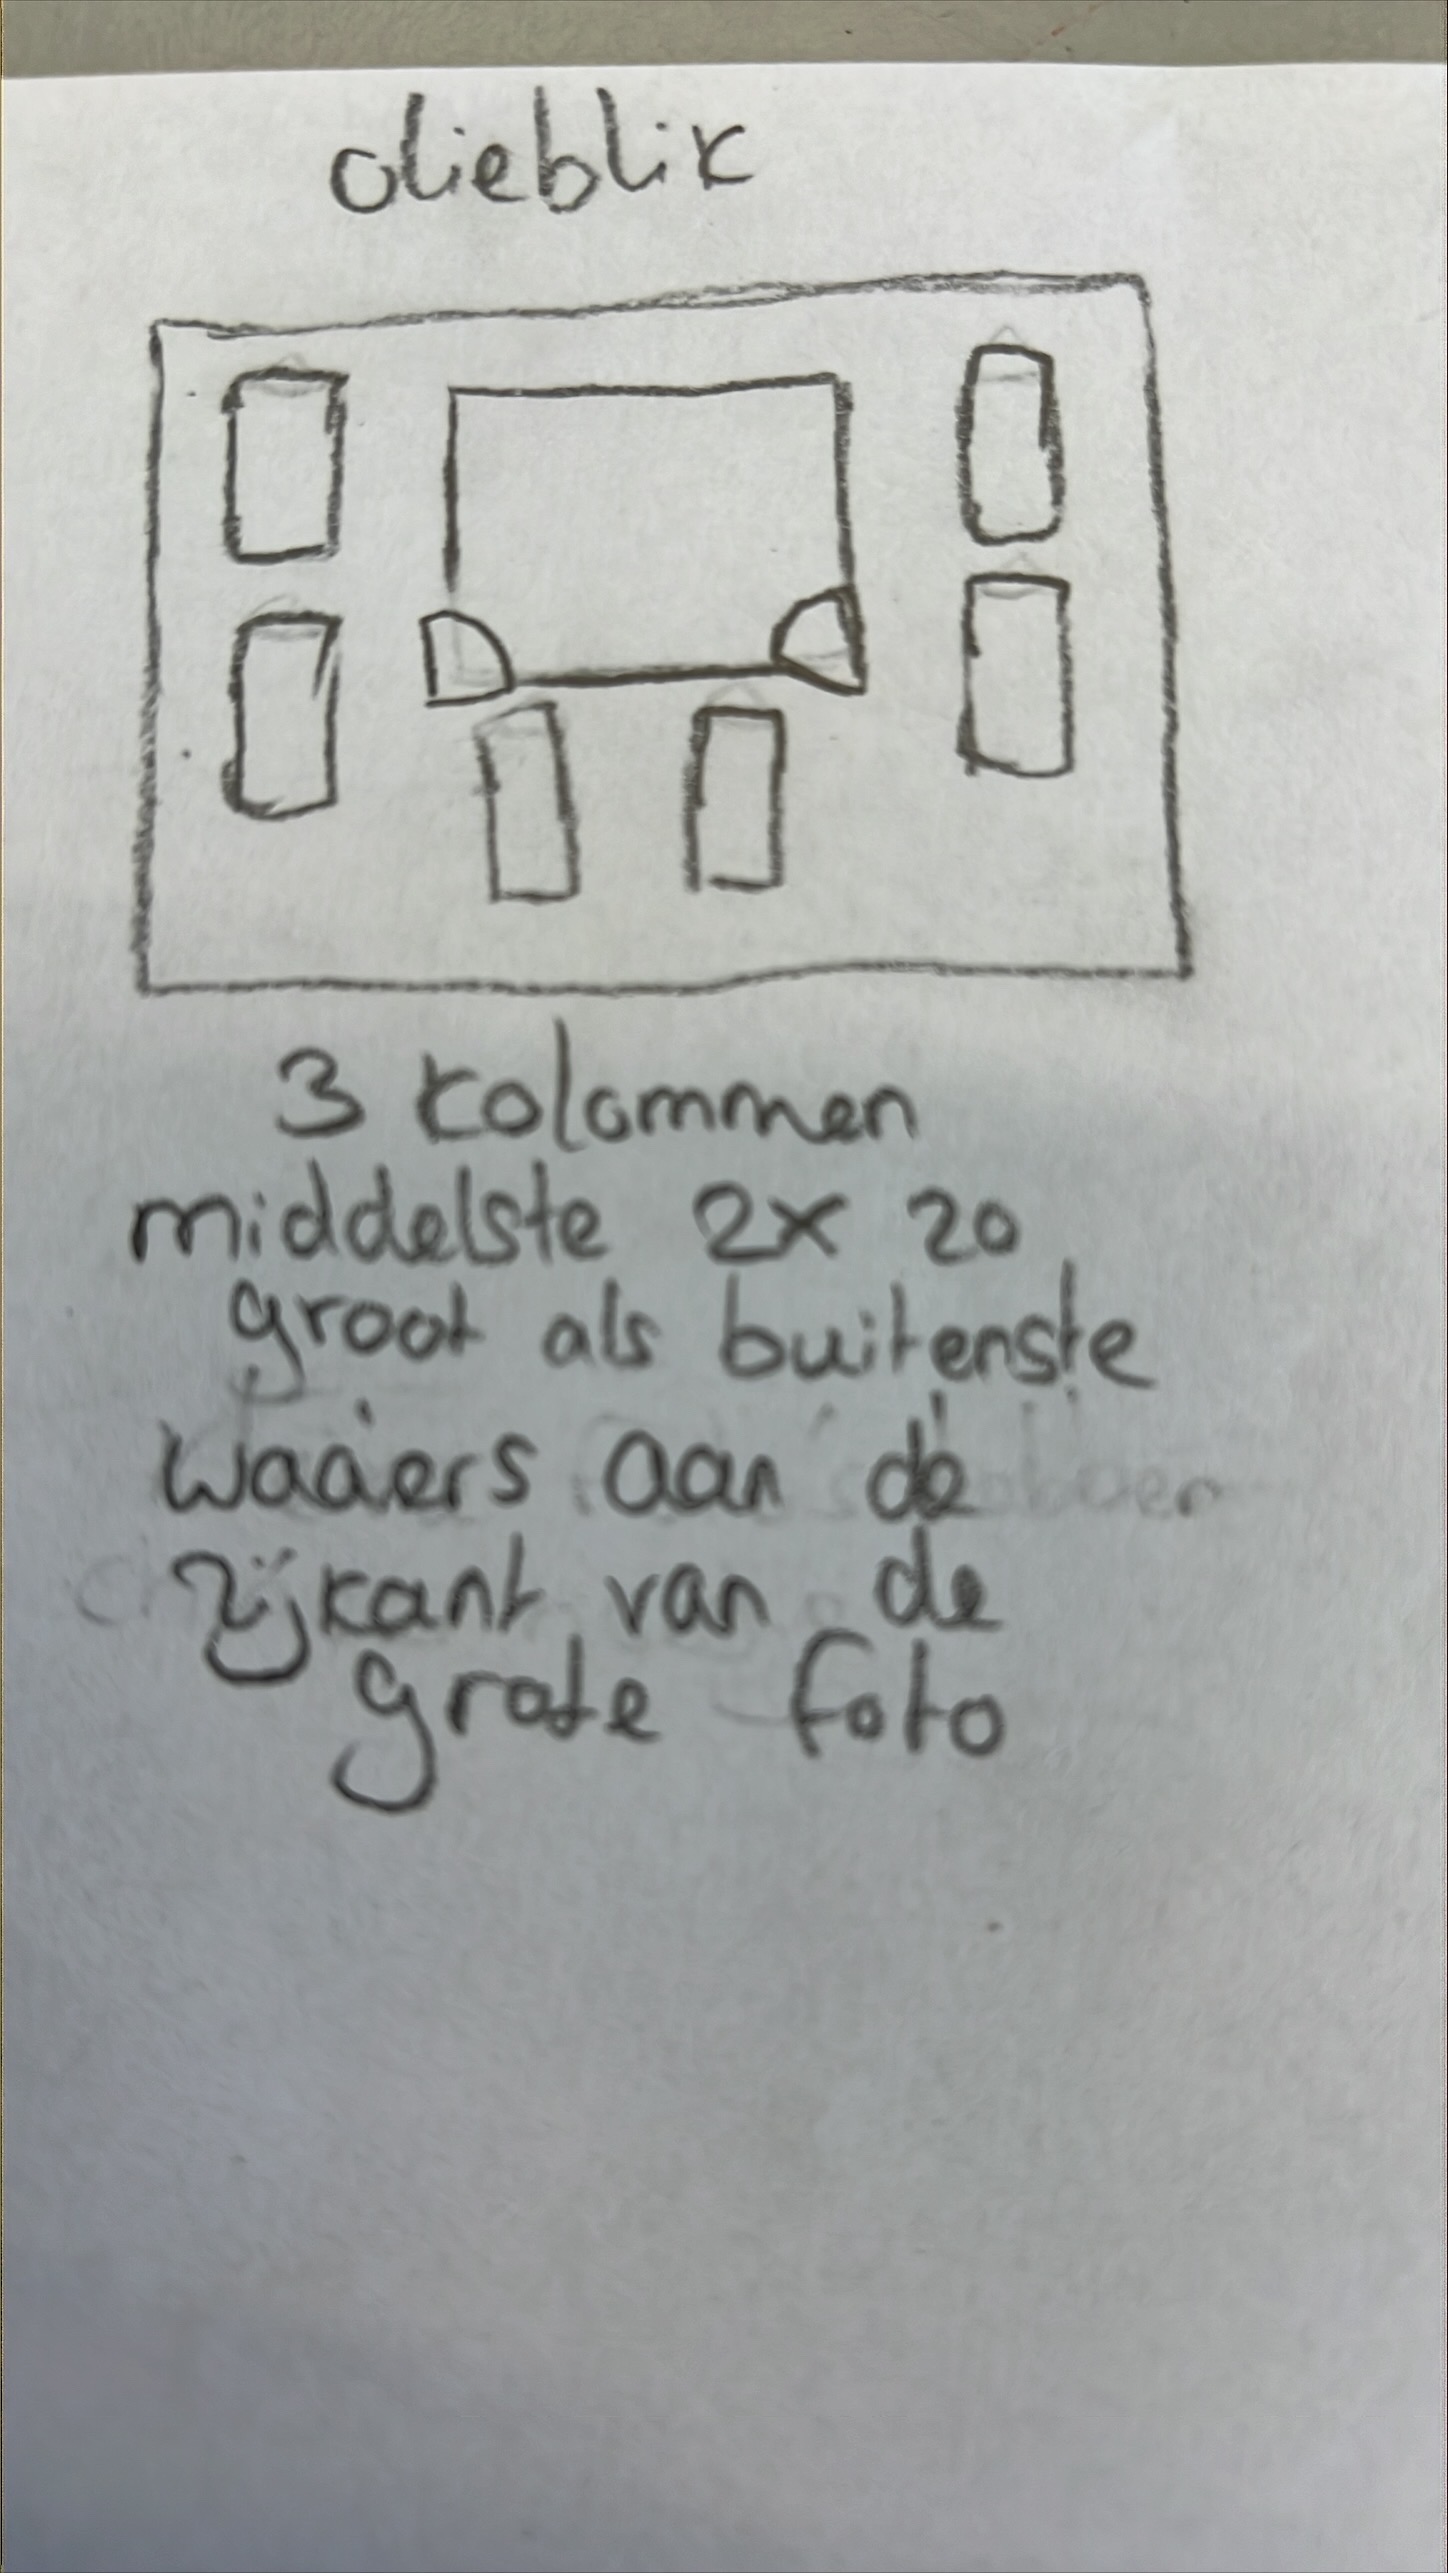 olieblik
3 kolommen
middelste 2x zo
groot als buitenste
waaiers aan de
zijkant van de
grote foto